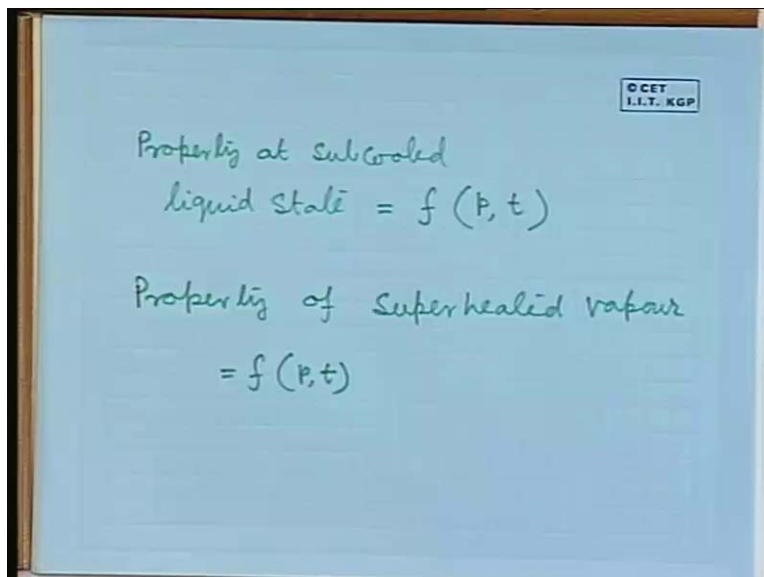 © CET
I.I.T. KGP
Property at subcooled
liquid state = f (P, t)
Property of superheated vapour
= f (P, t)